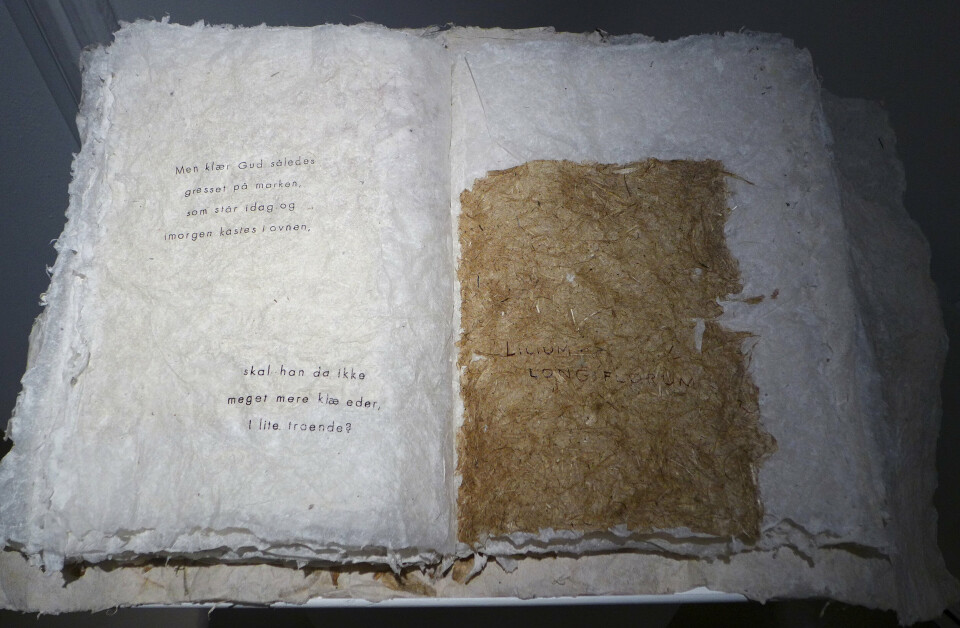 Men klær Gud således
gresset på marken,
som står idag og
imorgen kastes i ovnen,
skal han da ikke
meget mere klæ eder,
I lite troende?
LILIUM
LONGIFLORUM